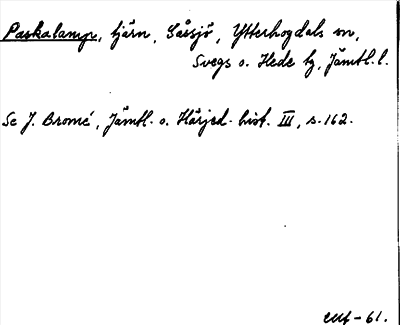 Paskalamp, tjärn, Såsjö, Ytterhogdals sn,
Svegs o. Hede tg, Jämtl. l.
Se J. Bromé, Jämtl. o. Härjed. hist. III, s. 162.
-61.